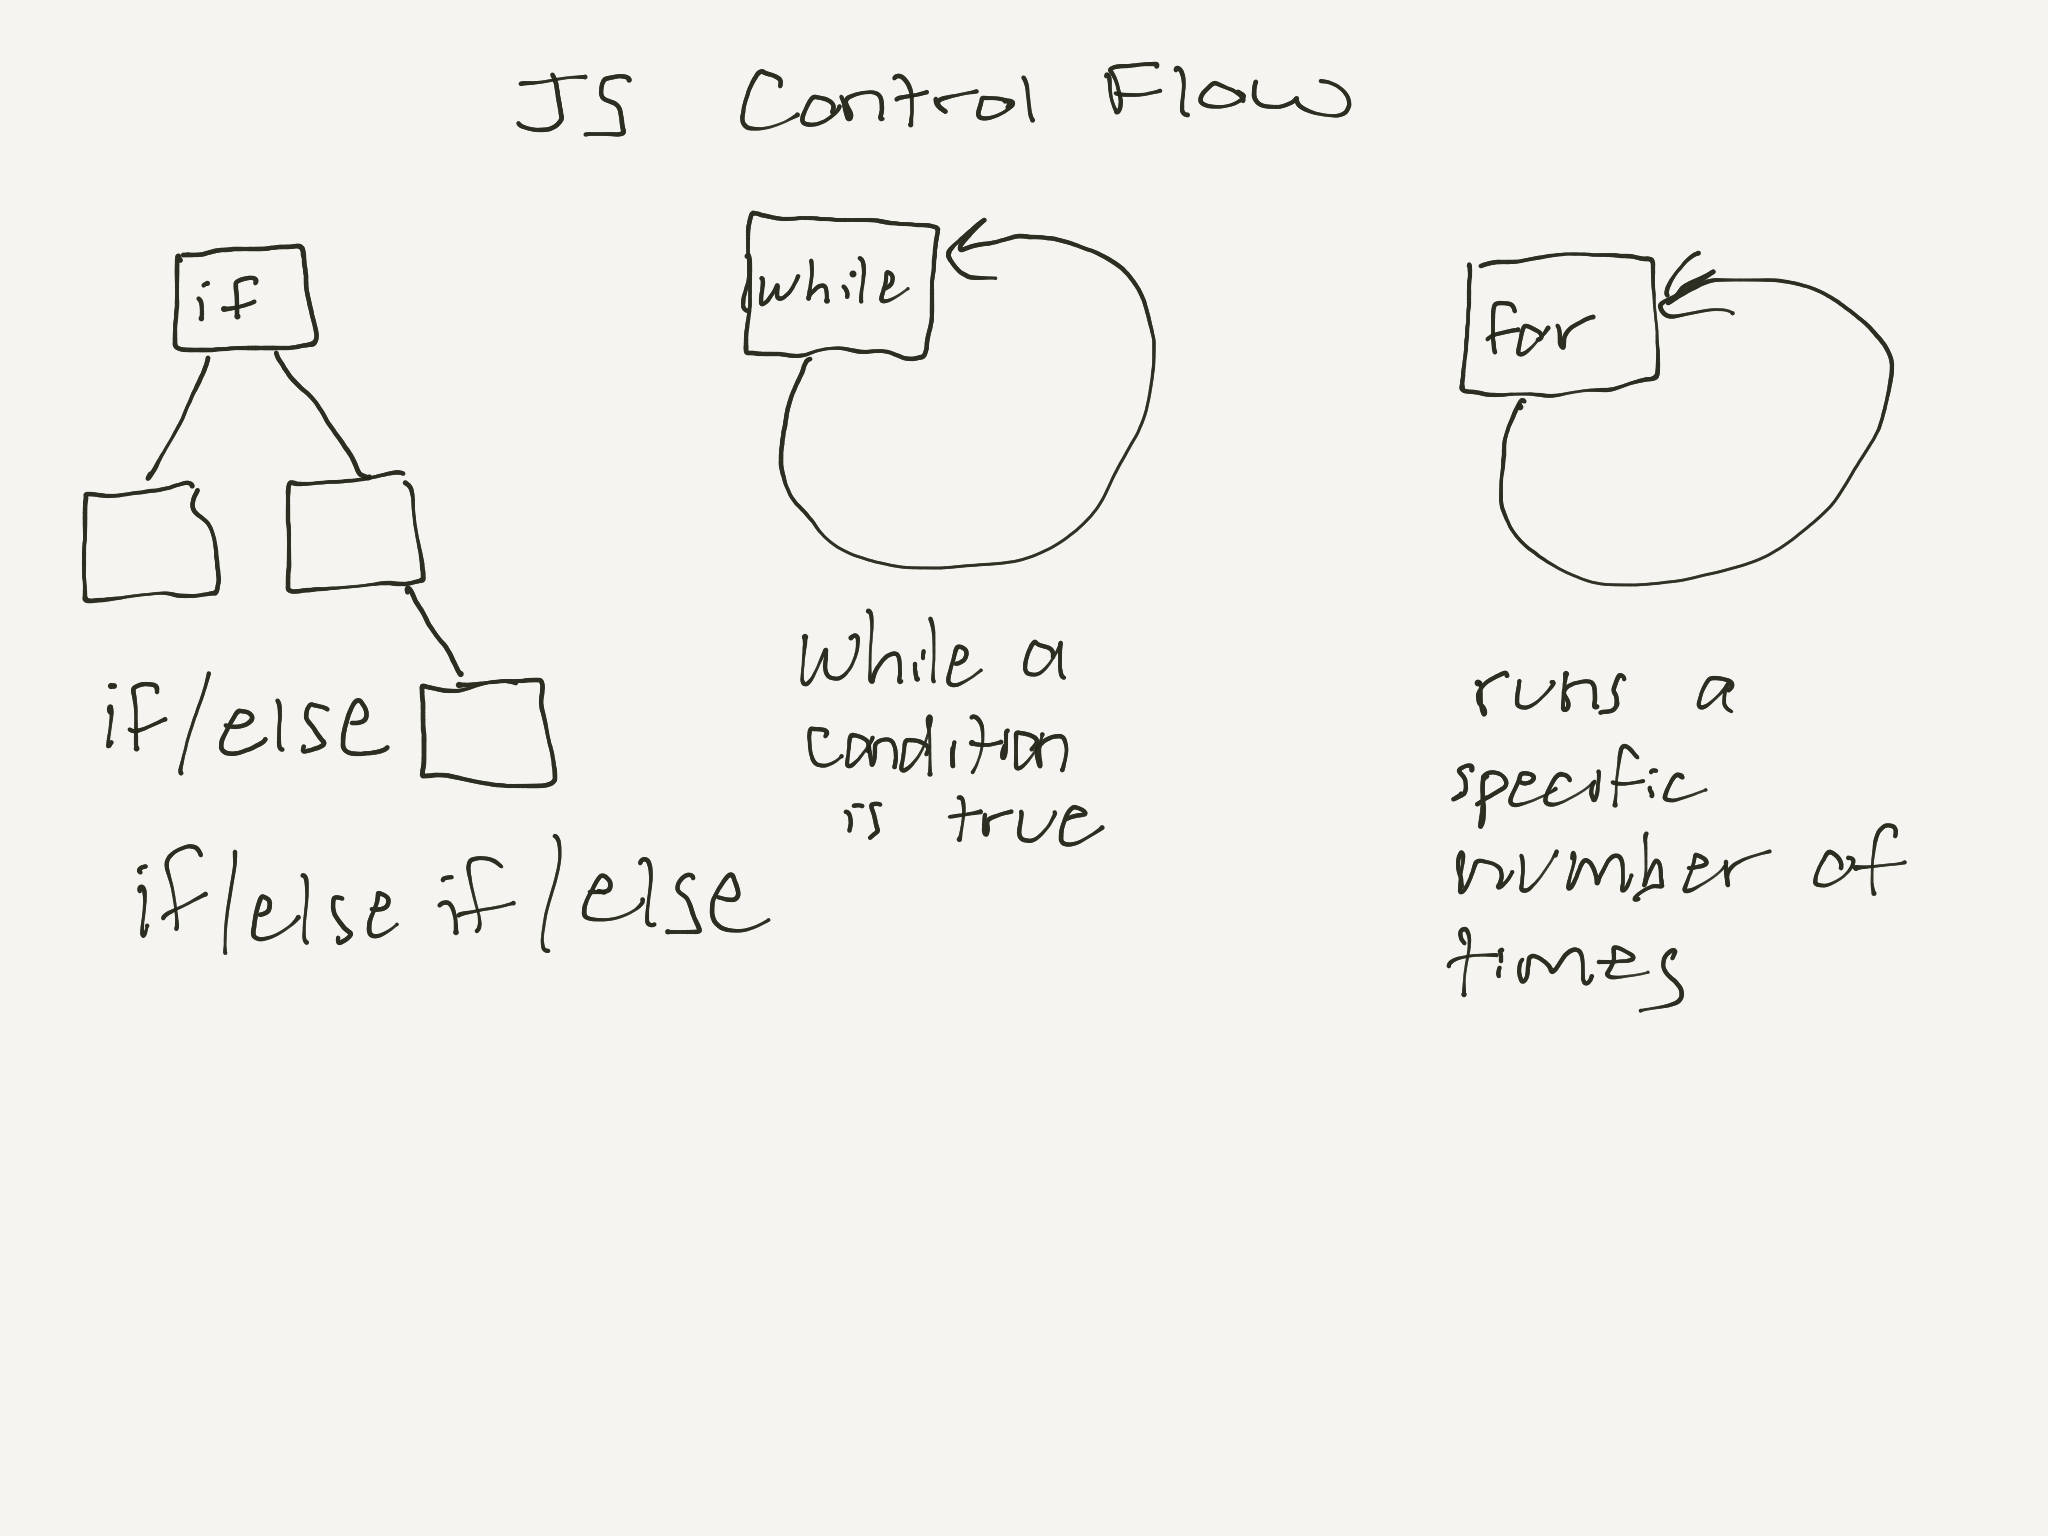 JS Control Flow
if
if/else
if/else if/else
while
while a
condition
is true
for
runs a
specific
number of
times